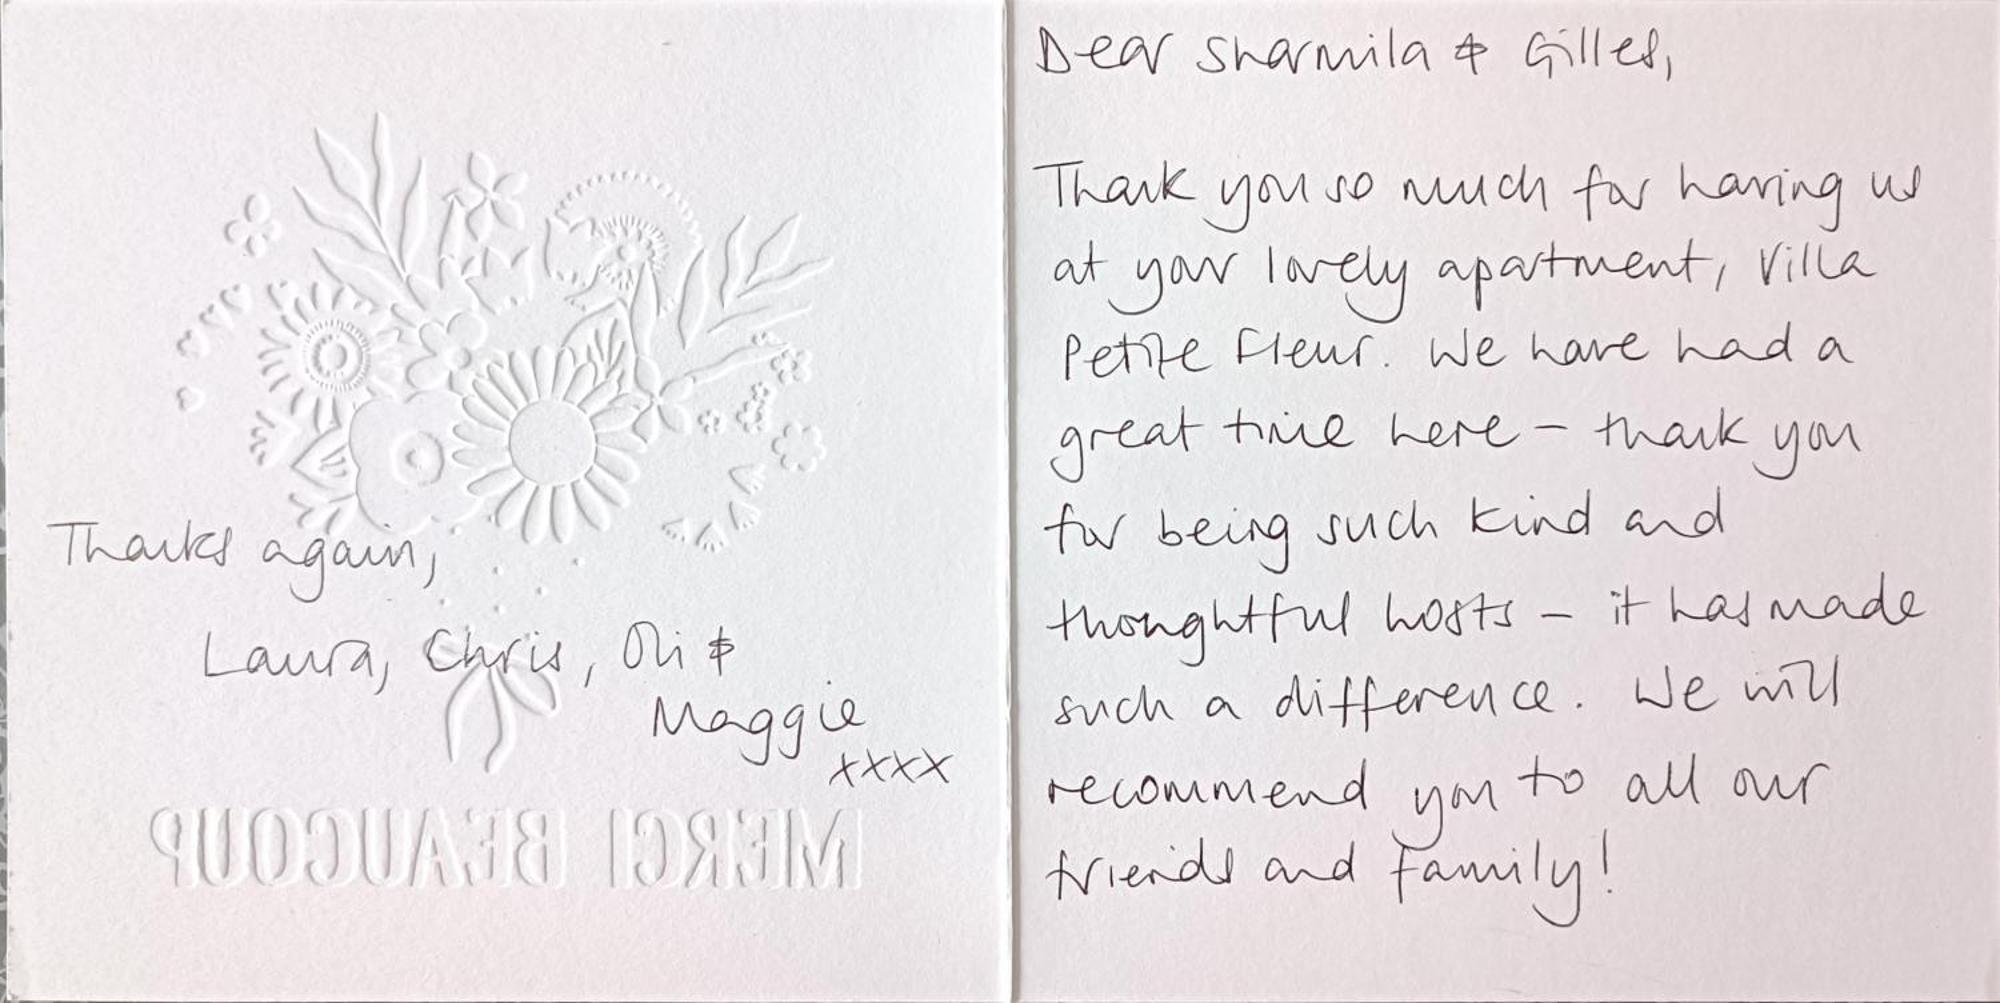 Dear Sharmila & Gilles,
Thank you so much for having us
at your lovely apartment, Villa
Petite Fleur. We have had a
great time here – thank you
for being such kind and
thoughtful hosts – it has made
such a difference. We will
recommend you to all our
friends and family!
Thanks again,
Laura, Chris, Oli &
Maggie
xxxx
MERCI BEAUCOUP